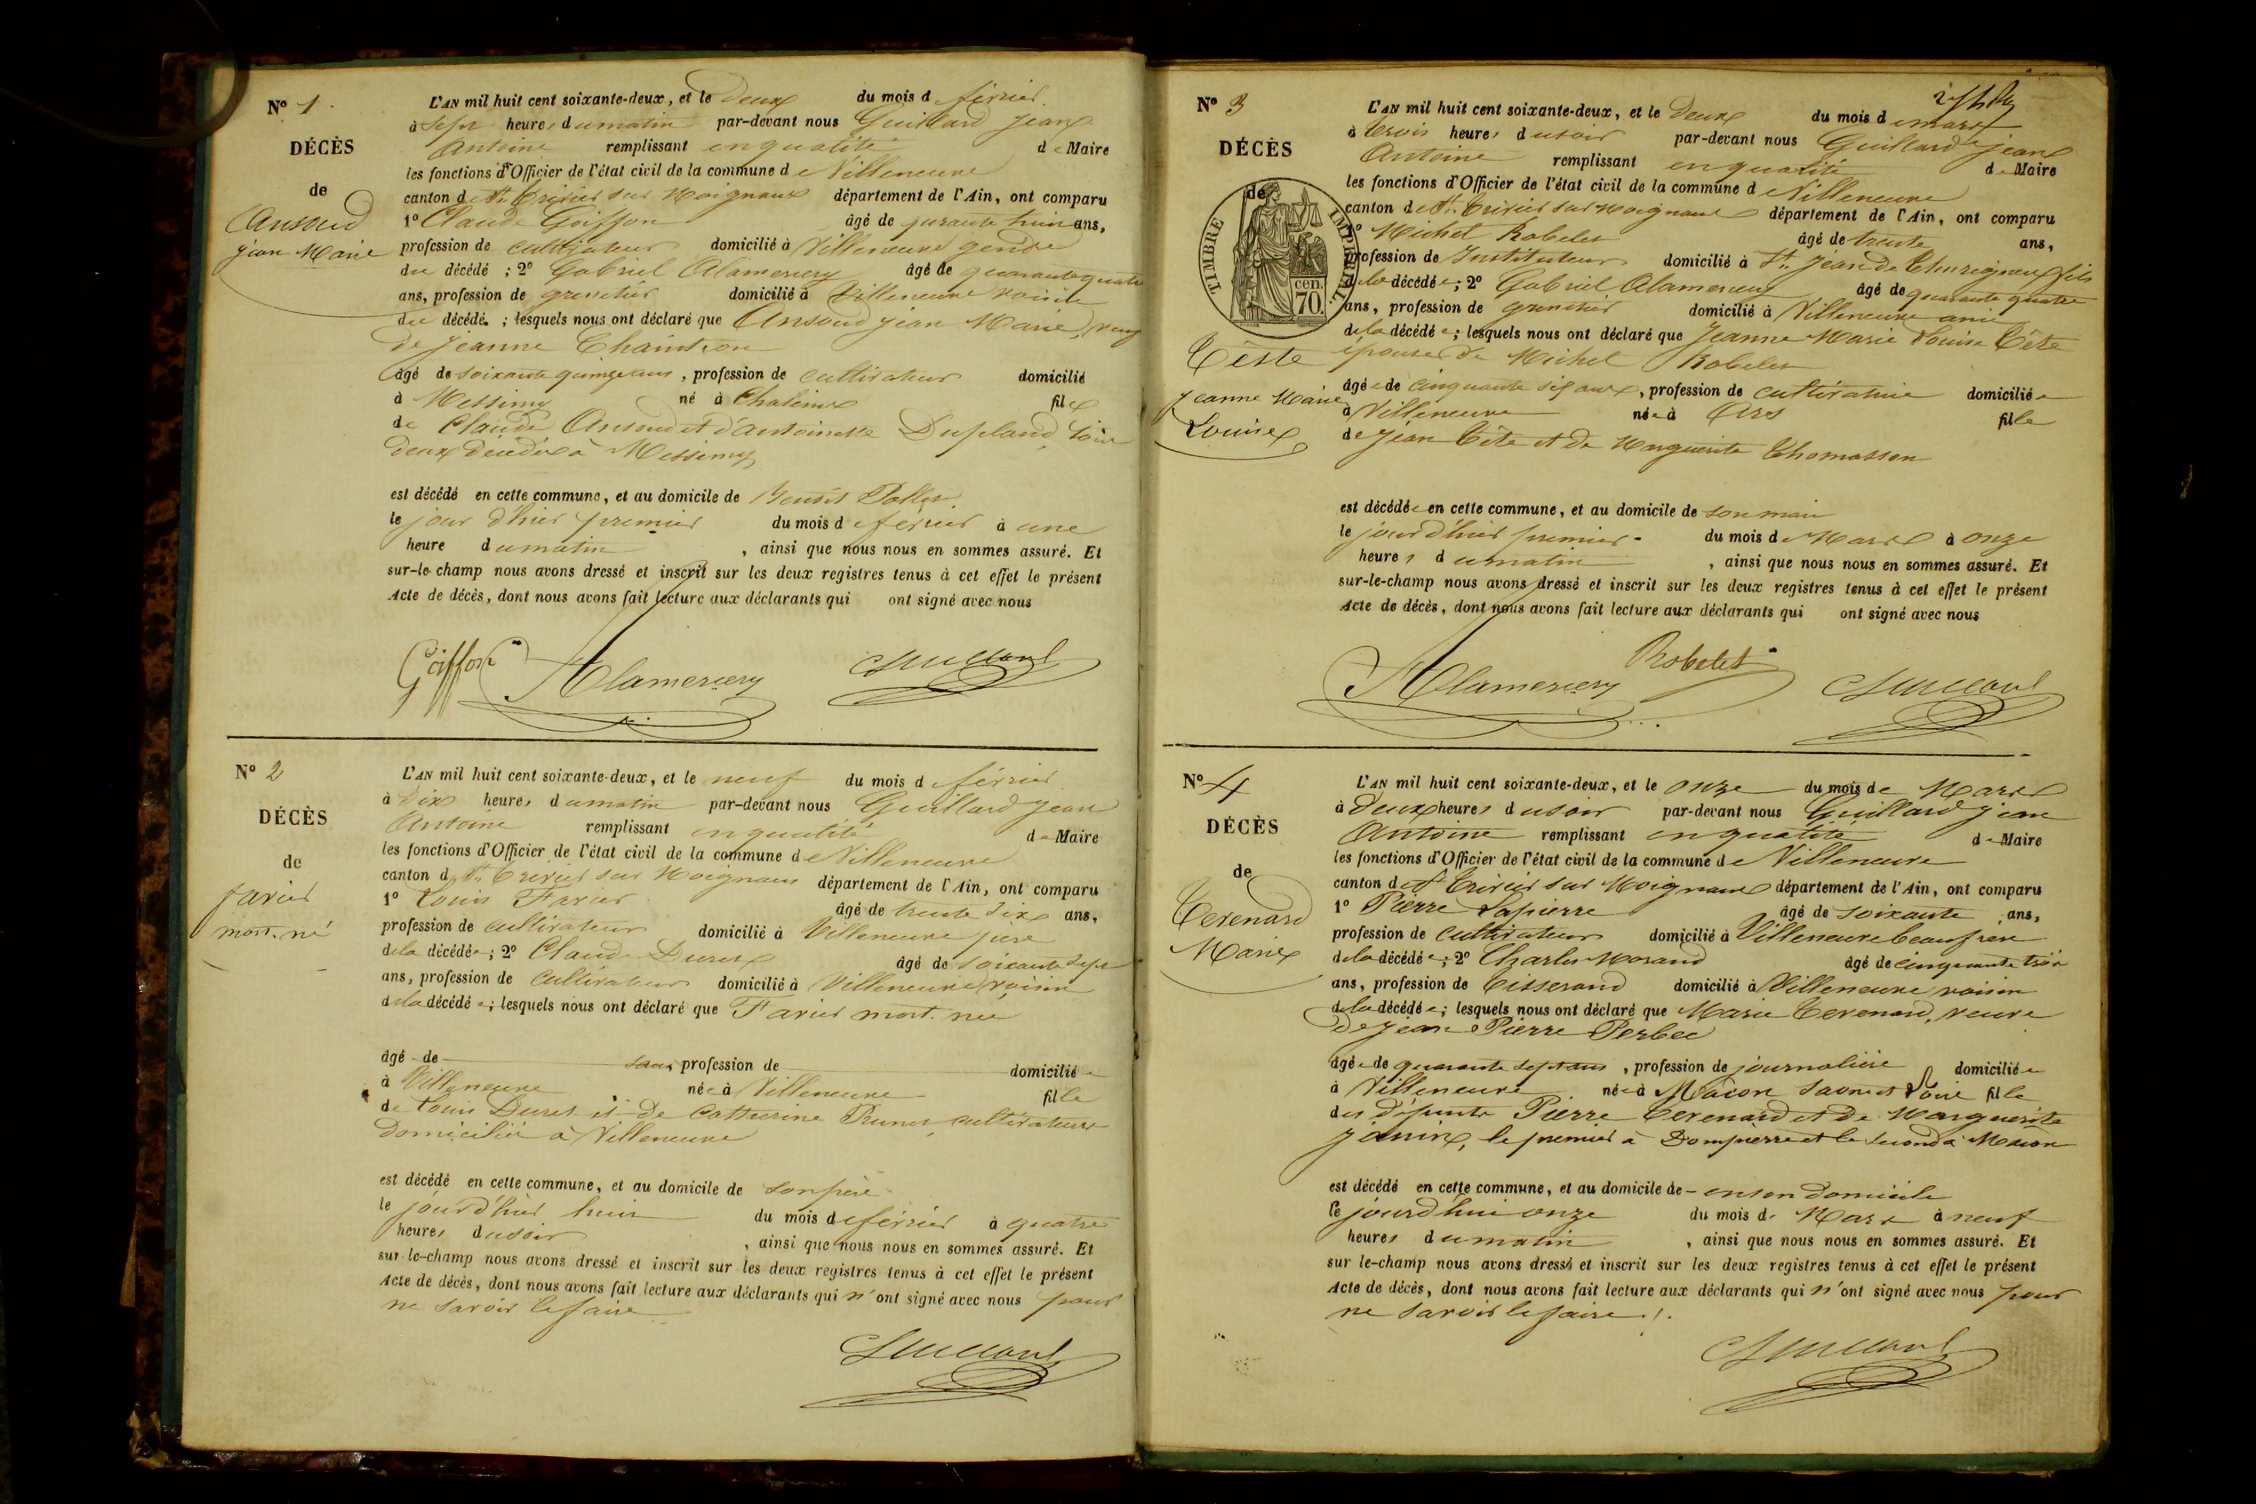 N° 1
DÉCÈS
de
Ansoud
Jean Marie
L'AN mil huit cent soixante-deux, et le Deux du mois de février
à Sept heures du matin par-devant nous Guillard Jean
Antoine remplissant en qualité de Maire
les fonctions d'Officier de l'état civil de la commune de Villeneuve
canton de St. Trivier sur Moignans département de l'Ain, ont comparu
1° Claude Goiffon âgé de huit ans,
profession de cultivateur domicilié à Villeneuve gendre
du décédé ; 2° Gabriel Alamercery âgé de quarante quatre
ans, profession de domicilié à Villeneuve voisin
du décédé. ; lesquels nous ont déclaré que Ansoud Jean Marie, veuf
de Jeanne
âgé de soixante quinze ans, profession de cultivateur domicilié
à Messimy né à Chaleins fils
de Claude Ansoud et d'antoinette Dupland, tous
deux décédés à Messimy
est décédé en cette commune, et au domicile de
le jour d'hier premier du mois de février à une
heure du matin, ainsi que nous nous en sommes assuré. Et
sur-le-champ nous avons dressé et inscrit sur les deux registres tenus à cet effet le présent
Acte de décès, dont nous avons fait lecture aux déclarants qui ont signé avec nous
Goiffon Alamercery Guillard
N° 2
DÉCÈS
de
Favier
mort. né
L'AN mil huit cent soixante-deux, et le neuf du mois de février
à Dix heures du matin par-devant nous Guillard Jean
Antoine remplissant en qualité de Maire
les fonctions d'Officier de l'état civil de la commune de Villeneuve
canton de St. Trivier sur Moignans département de l'Ain, ont comparu
1° Louis Favier âgé de trente six ans,
profession de cultivateur domicilié à Villeneuve père
de la décédée ; 2° Claude Duret âgé de soixante sept
ans, profession de cultivateur domicilié à Villeneuve voisin
de la décédée ; lesquels nous ont déclaré que Favier mort. née
âgé de sans profession de domiciliée
à Villeneuve née à Villeneuve fille
de Louis Duret et de Catherine Prunet, cultivateurs
domiciliés à Villeneuve
est décédé en cette commune, et au domicile de son père
le jour d'hier huit du mois de février à quatre
heures du soir, ainsi que nous nous en sommes assuré. Et
sur-le-champ nous avons dressé et inscrit sur les deux registres tenus à cet effet le présent
Acte de décès, dont nous avons fait lecture aux déclarants qui n'ont signé avec nous pour
ne savoir le faire
Guillard
N° 3
DÉCÈS
de
TIMBRE IMPÉRIAL
cen.
70.
Tête
Jeanne Marie
Louise
L'AN mil huit cent soixante-deux, et le Deux du mois de mars
à trois heures du soir par-devant nous Guillard Jean
Antoine remplissant en qualité de Maire
les fonctions d'Officier de l'état civil de la commune de Villeneuve
canton de St. Trivier sur Moignans département de l'Ain, ont comparu
1° Michel Robelet âgé de trente ans,
profession de Instituteur domicilié à St. Jean de Thurigneux fils
de la décédée ; 2° Gabriel Alamercery âgé de quarante quatre
ans, profession de domicilié à Villeneuve ami
de la décédée ; lesquels nous ont déclaré que Jeanne Marie Louise Tête
épouse de Michel Robelet
âgée de cinquante six ans, profession de cultivatrice domiciliée
à Villeneuve née à Ars fille
de Jean Tête et de Marguerite Thomasson
est décédée en cette commune, et au domicile de son mari
le jour d'hier premier du mois de Mars à onze
heures du matin, ainsi que nous nous en sommes assuré. Et
sur-le-champ nous avons dressé et inscrit sur les deux registres tenus à cet effet le présent
Acte de décès, dont nous avons fait lecture aux déclarants qui ont signé avec nous
Alamercery Robelet Guillard
N° 4
DÉCÈS
de
Terenard
Marie
L'AN mil huit cent soixante-deux, et le onze du mois de Mars
à Deux heures du soir par-devant nous Guillard Jean
Antoine remplissant en qualité de Maire
les fonctions d'Officier de l'état civil de la commune de Villeneuve
canton de St. Trivier sur Moignans département de l'Ain, ont comparu
1° Pierre Lapierre âgé de soixante ans,
profession de cultivateur domicilié à Villeneuve beaufrère
de la décédée ; 2° Charles Morand âgé de cinquante trois
ans, profession de Tisserand domicilié à Villeneuve voisin
de la décédée ; lesquels nous ont déclaré que Marie Terenard, veuve
de Jean Pierre Perbec
âgée de quarante sept ans, profession de journalière domiciliée
à Villeneuve née à Mâcon Saone et Loire fille
des défunts Pierre Terenard et de Marguerite
Janin, le premier à Dompierre et la seconde à Mâcon
est décédé en cette commune, et au domicile de - en son domicile
le jourd'hui onze du mois de Mars à neuf
heures du matin, ainsi que nous nous en sommes assuré. Et
sur le-champ nous avons dressé et inscrit sur les deux registres tenus à cet effet le présent
Acte de décès, dont nous avons fait lecture aux déclarants qui n'ont signé avec nous pour
ne savoir le faire ./.
Guillard